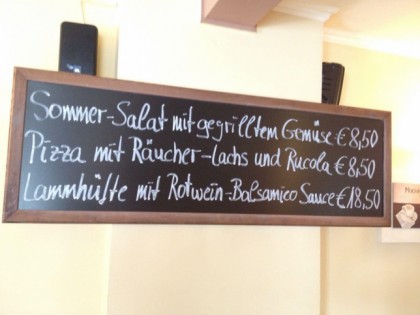 Sommer-Salat mit gegrilltem Gemüse € 8,50
Pizza mit Räucher-Lachs und Rucola € 8,50
Lammhüfte mit Rotwein-Balsamico Sauce € 18,50